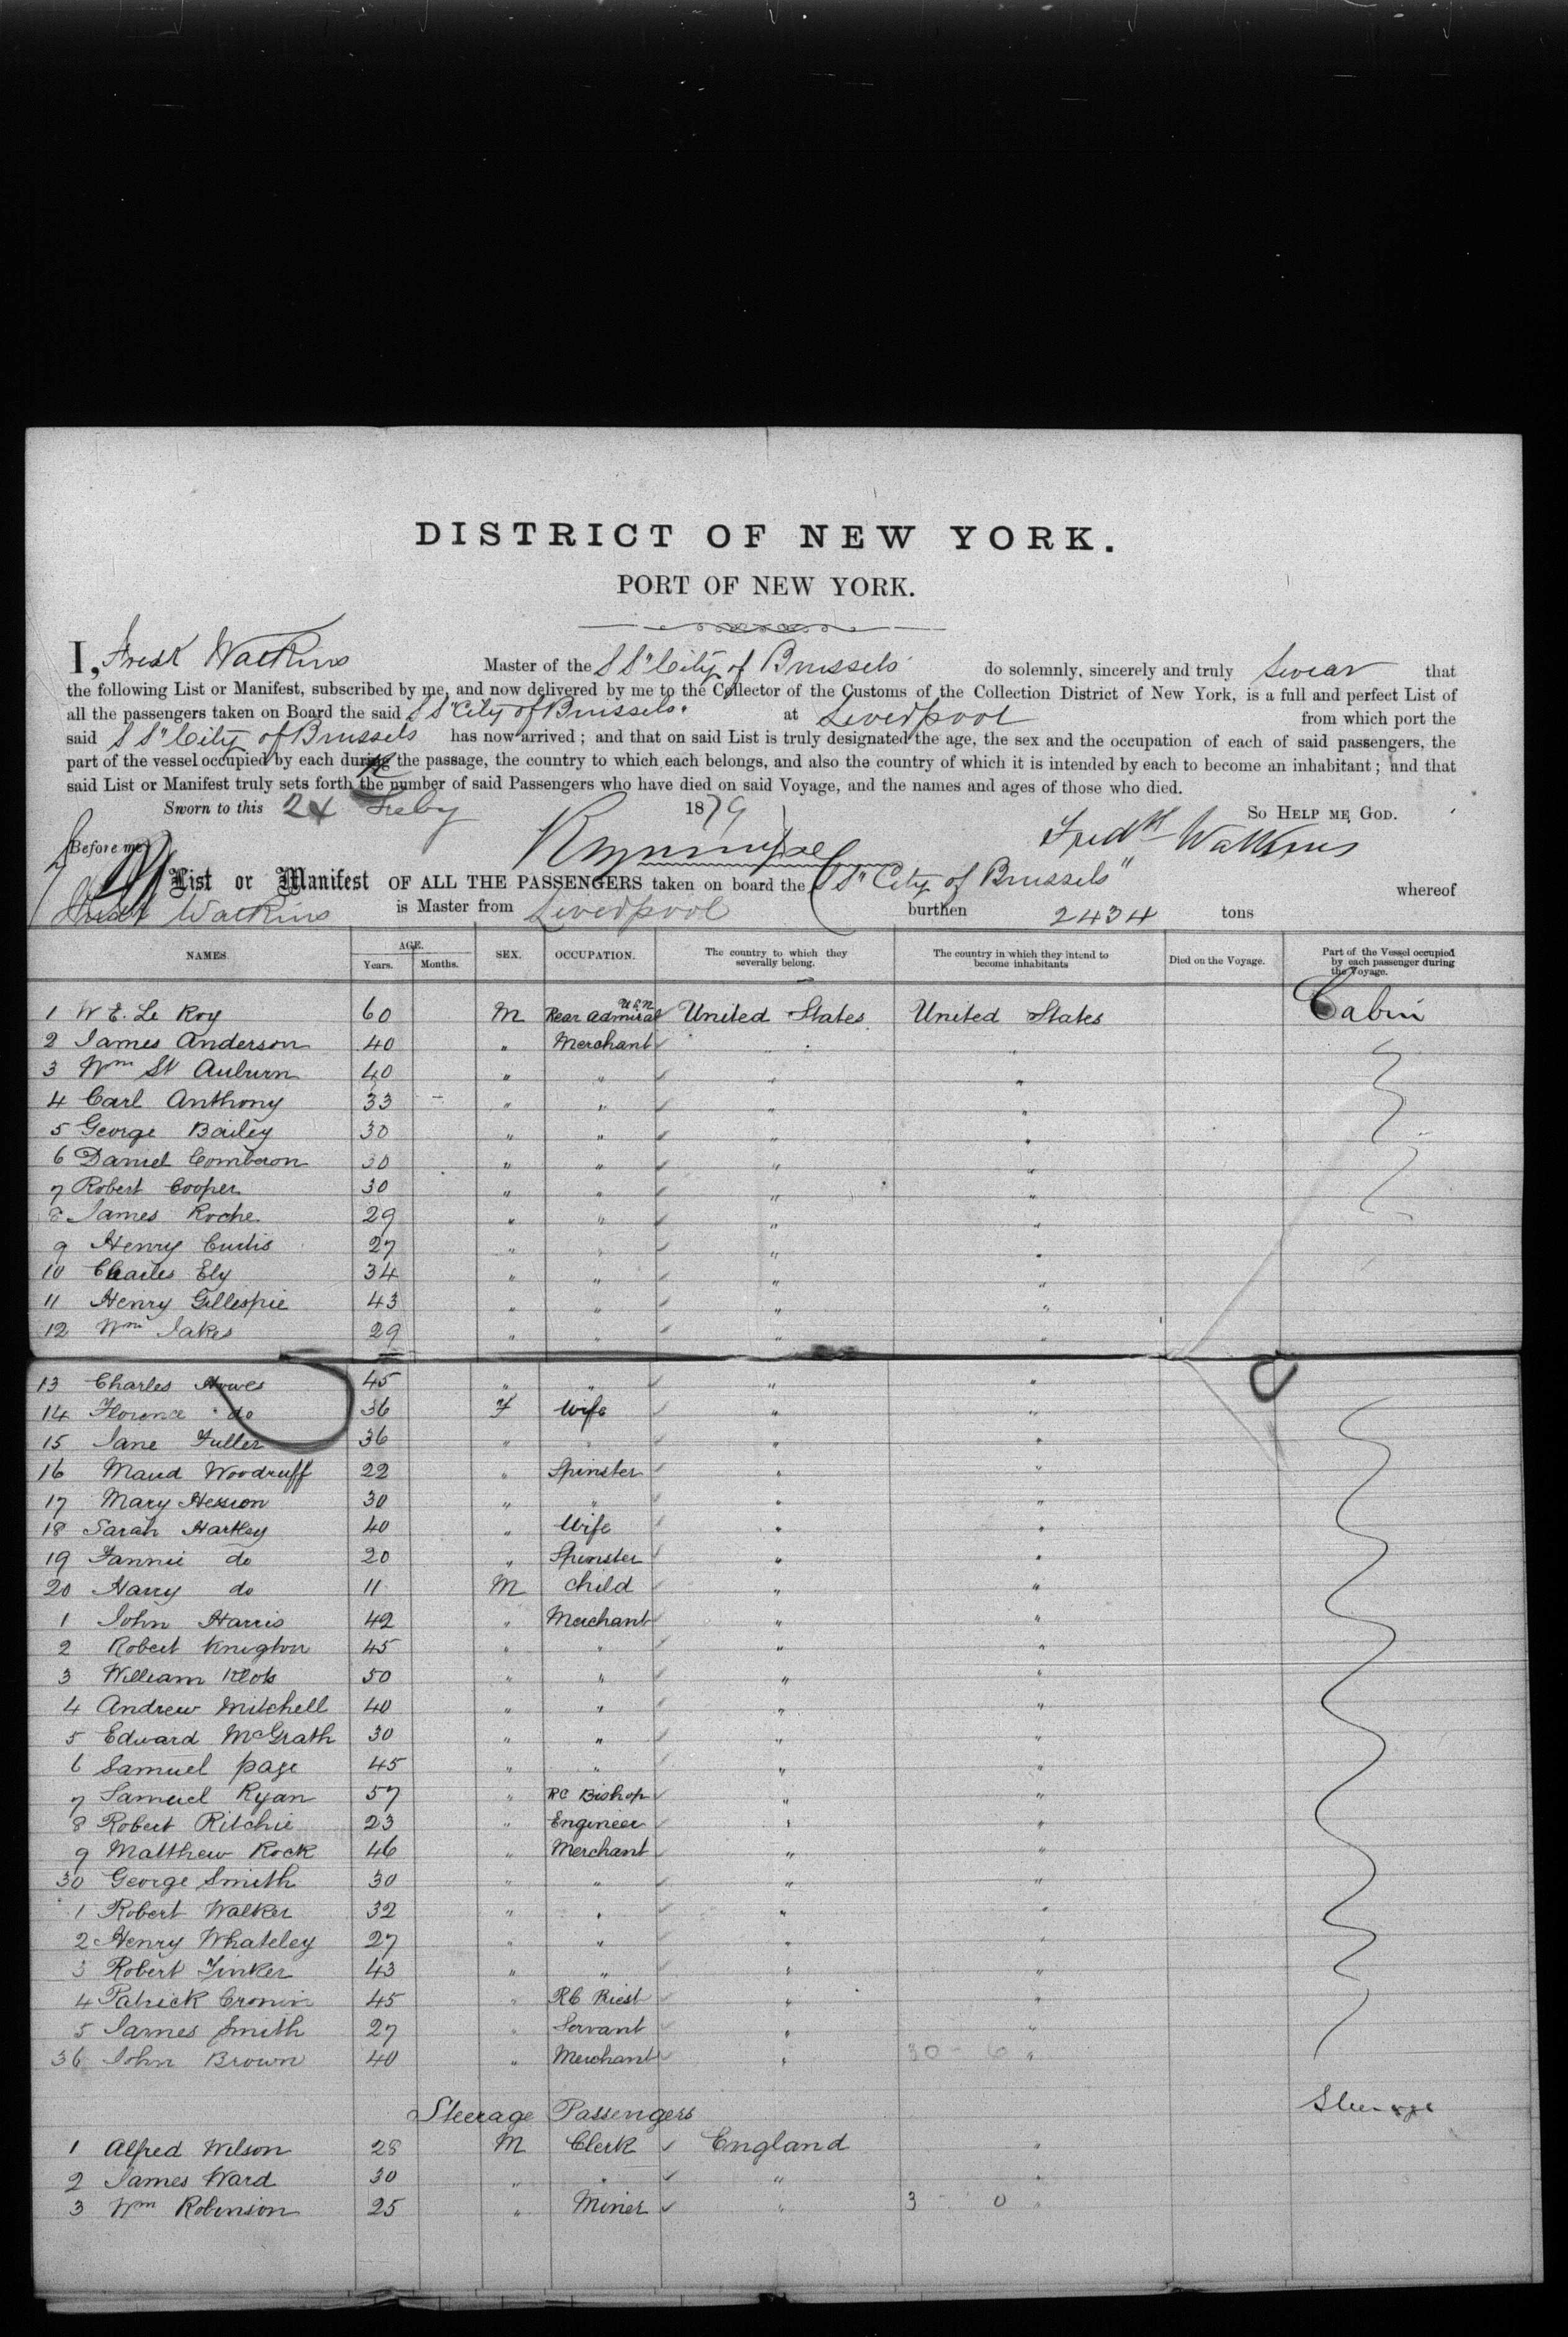 DISTRICT OF NEW YORK.
PORT OF NEW YORK.
I, Fredk Watkins Master of the SS "City of Brussels" do solemnly, sincerely and truly swear that
the following List or Manifest, subscribed by me, and now delivered by me to the Collector of the Customs of the Collection District of New York, is a full and perfect List of
all the passengers taken on Board the said SS "City of Brussels" at Liverpool from which port the
said SS "City of Brussels has now arrived; and that on said List is truly designated the age, the sex and the occupation of each of said passengers, the
part of the vessel occupied by each during the passage, the country to which each belongs, and also the country of which it is intended by each to become an inhabitant; and that
said List or Manifest truly sets forth the number of said Passengers who have died on said Voyage, and the names and ages of those who died.
Sworn to this 24 Feby 1879 So HELP ME GOD.
Before me Fredk Watkins
List or Manifest OF ALL THE PASSENGERS taken on board the SS "City of Brussels" whereof
Fredk Watkins is Master from Liverpool burthen 2434 tons
NAMES. AGE. Years. Months. SEX. OCCUPATION. The country to which they severally belong. The country in which they intend to become inhabitants Died on the Voyage. Part of the Vessel occupied by each passenger during the Voyage.
1 W E. Le Roy 60 M Rear Admiral USN United States United States Cabin
2 James Anderson 40 " Merchant " "
3 Wm St Auburn 40 " " " "
4 Carl Anthony 33 - " " " "
5 George Bailey 30 " " " "
6 Daniel Comberon 30 " " " "
7 Robert Cooper 30 " " " "
8 James Roche 29 " " " "
9 Henry Curtis 27 " " " "
10 Charles Ely 34 " " " "
11 Henry Gillespie 43 " " " "
12 Wm Jakes 29 " " " "
13 Charles Howes 45 " " " "
14 Florence do 36 F Wife " "
15 Jane Fuller 36 " " " "
16 Maud Woodruff 22 " Spinster " "
17 Mary Hession 30 " " " "
18 Sarah Hartley 40 " Wife " "
19 Fannie do 20 " Spinster " "
20 Harry do 11 M Child " "
1 John Harris 42 " Merchant " "
2 Robert Knighton 45 " " " "
3 William Klots 50 " " " "
4 Andrew Mitchell 40 " " " "
5 Edward McGrath 30 " " " "
6 Samuel page 45 " " " "
7 Samuel Ryan 57 " RC Bishop " "
8 Robert Ritchie 23 " Engineer " "
9 Matthew Rock 46 " Merchant " "
30 George Smith 30 " " " "
1 Robert Walker 32 " " " "
2 Henry Whateley 27 " " " "
3 Robert Tinker 43 " " " "
4 Patrick Cronin 45 " RC Priest " "
5 James Smith 27 " Servant " "
36 John Brown 40 " Merchant " 30 - 6 "
Steerage Passengers Steerage
1 Alfred Wilson 28 M Clerk England "
2 James Ward 30 " " " "
3 Wm Robinson 25 " Miner " 3 - 0 "